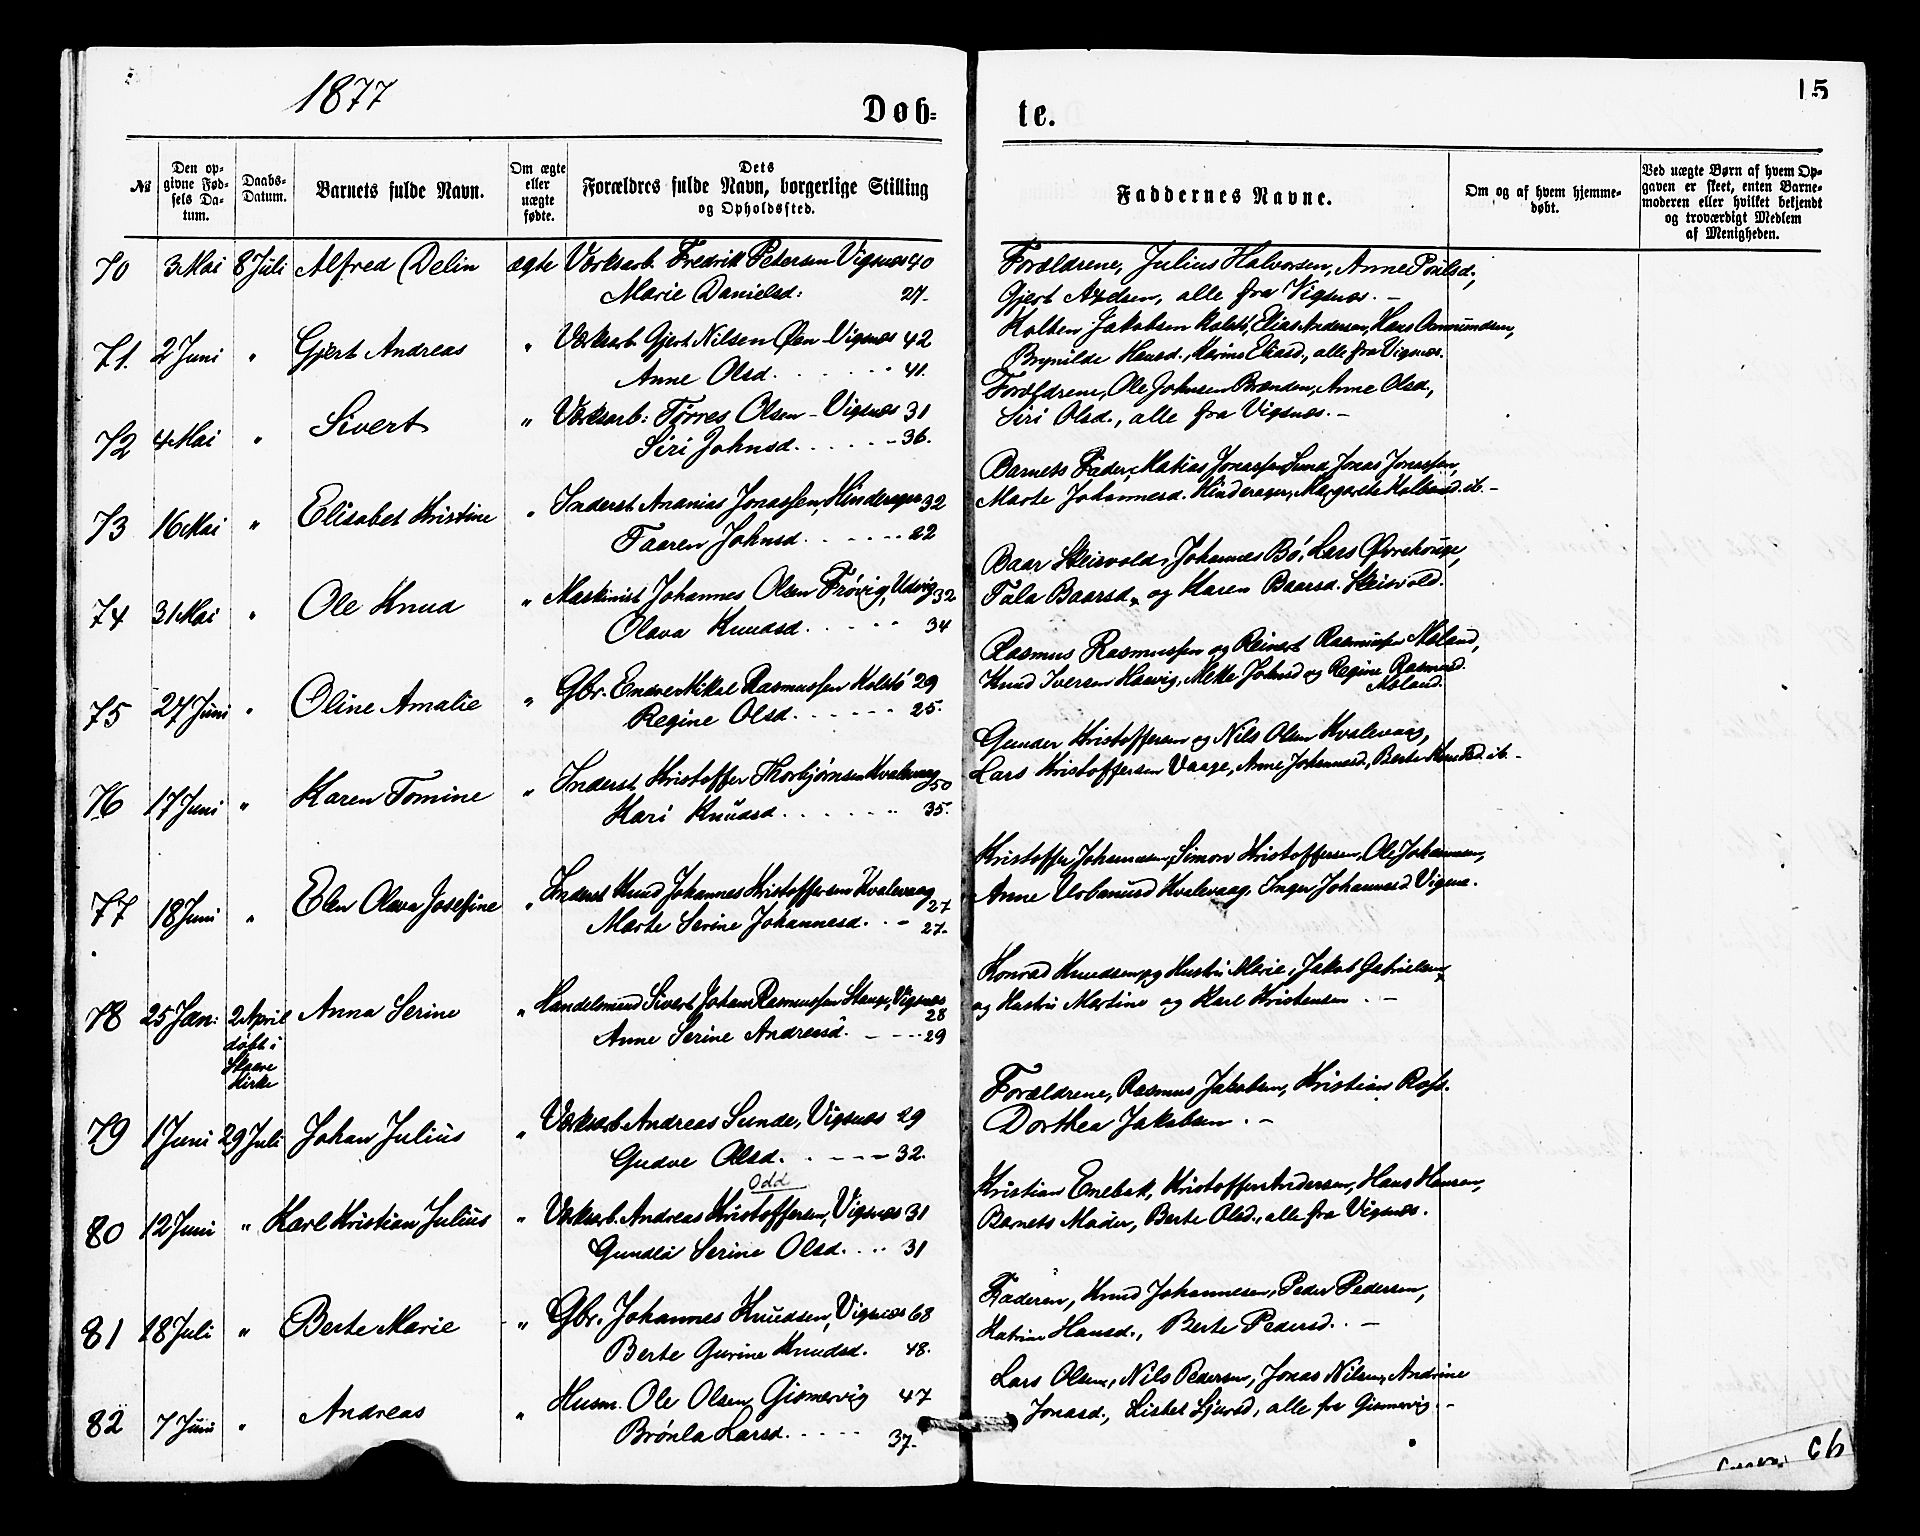 1877
15
Døb-
te.
№
Den op-
givne Fød-
sels Da-
tum.
Daabs-
Datum.
Barnets fulde Navn.
Om ægte
eller
uægte
fødte.
Dets
Forældres fulde Navn, borgerlige Stilling
og Opholdssted.
Faddernes Navne.
Om og af hvem hjemme-
døbt.
Ved uægte Børn af hvem Op-
gaven er skeet, enten Barne-
moderen eller hvilket bekjendt
og troværdigt Medlem
af Menigheden.
70 3 Mai 8 Juli Alfred Delin ægte Værksarb. Fredrik Petersen Vigsnæs 40
Marie Danielsd: 27.
Forældrene, Julius Halvorsen, Anne Poulsd.,
Gjert Axelsen, alle fra Vigsnæs. -
71. 2 Juni " Gjert Andreas " Værksarb. Gjert Nilsen Øen - Vigsnæs 42
Anne Olsd. . . . . . . 41.
Kolben Jakobsen Kolstö, Elias Andersen, Hans Amundsen,
Brynilde Hansd., Karine Eliasd., alle fra Vigsnæs.
72 4 Mai " Sivert " Værksarb: Tørres Olsen - Vigsnæs 31
Siri Johnsd. . . . . - 36.
Forældrene, Ole Johnsen Brænden, Anne Olsd.,
Siri Olsd., alle fra Vigsnæs. -
73 16 Mai " Elisabet Kristine " Inderst Ananias Jonassen, Hinderager 32
Taaren Johnsd . . . . . . 22
Barnets Fader, Matias Jonassen Sund, Jonas Jonassen,
Marte Johannesd. Hinderager, Margarete Kolbensd. ib. -
74 31 Mai " Ole Knud " Maskinist Johannes Olsen Frövig, Udvig 32
Olava Knudsd . . . . . 34
Baar Skeisvold, Johannes Bö, Lars Øvrehouge,
Tala Baarsd., og Karen Baarsd. Skeisvold.
75 27 Juni " Oline Amalie " Gbr. Endre Mikal Rasmussen Kolstö 29
Regine Olsd. . . . . . 25.
Rasmus Rasmussen og Reinert Rasmussen Mæland,
Knud Iversen Haavig, Mette Johnsd og Regine Rasmusd.
Mæland.
76 17 Juni " Karen Tomine " Inderst Kristoffer Thorbjörnsen Kvalevaag 50
Kari Knudsd . . . . . . 35.
Gunder Kristoffersen og Nils Olsen Kvalevaag,
Lars Kristoffersen Vaage, Anne Johannesd, Berte Knudsd. ib. -
77 18 Juni " Elen Olava Josefine " Inderst Knud Johannes Kristoffersen Kvalevaag 27
Marte Serine Johannesd. . - 27.
Kristoffer Johannesen, Simon Kristoffersen, Ole Johannesen,
Anne Urbanusd Kvalevaag, Inger Johannesd Vigsnæ.
78 25 Jan: 2 April Anna Serine " Handelsmand Sivert Johan Rasmussen Stange, Vigsnæs 28
døbt i
Skaare
Kirke
Anne Serine Andreasd. - - - - 29
Konrad Knudsen og Hustru Marie, Jakob Gabrielsen
og Hustru Martine og Karl Kristensen . -
79 1 Juni 29 Juli Johan Julius " Værksarb Andreas Sunde, Vigsnæs 29
Gudve Olsd. . - - - 32.
Forældrene, Rasmus Jakobsen, Kristian Ross.
Dorthea Jakobsen . -
Odd
80 12 Juni " Karl Kristian Julius " Værksarb. Andreas Kristoffersen, Vigsnæs 31
Gundla Serine Olsd. . . . 31
Kristian Enebak, Kristoffer Andersen, Hans Hansen,
Barnets Moder, Berte Olsd., alle fra Vigsnæs.
81 18 Juli " Berte Marie " Gbr. Johannes Knudsen, Vigsnæs 68
Berte Gurine Knudsd. 48.
Faderen, Knud Johannesen, Peder Pedersen,
Katrine Hansd., Berte Pedersd. . -
82 7 Juni " Andreas " Husm. Ole Olsen, Gismervig 47
Brønla Larsd. . . . . . 37.
Lars Olsen, Nils Pedersen, Jonas Nilsen, Andrine
Jonasd., Lisbet Sjursd, alle fra Gismervig. -